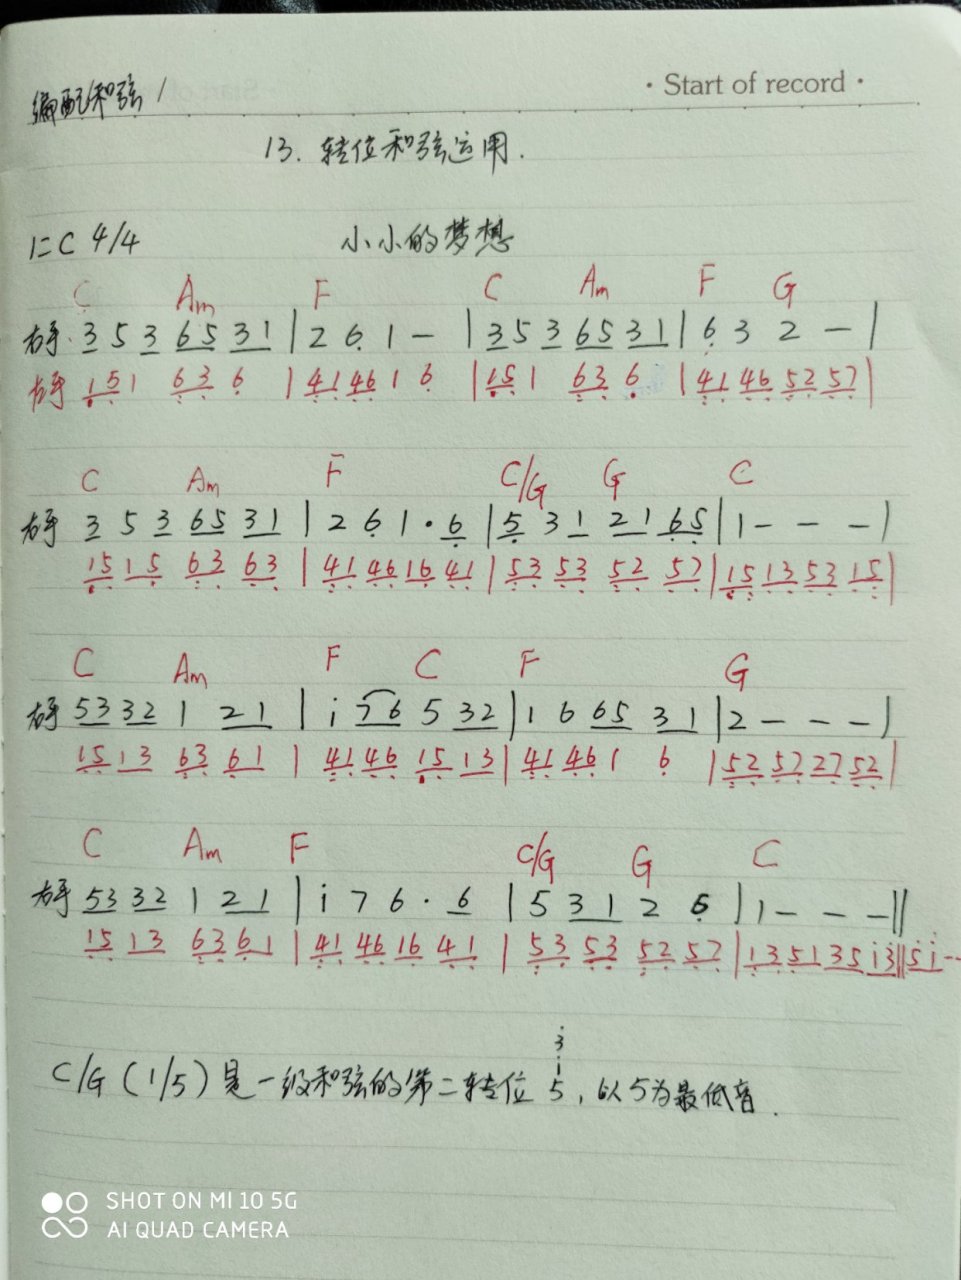 · Start of record ·
编配和弦 1
13. 转位和弦运用.
1=C 4/4 小小的梦想
C Am F C Am F G
右手. 3 5 3 6 5 3 1 | 2 6̣ 1 - | 3 5 3 6 5 3 1 | 6̣ 3 2 - |
左手 1 5 1 6 3 6 | 4 1 4 6 1 6 | 1 5 1 6 3 6 | 4 1 4 6 5 2 5 7 |
C Am F C/G G C
右手 3 5 3 6 5 3 1 | 2 6̣ 1 · 6̣ | 5̣ 3 1 2 1 6̣ 5̣ | 1 - - - |
1 5 1 5 6 3 6 3 | 4 1 4 6 1 6 4 1 | 5 3 5 3 5 2 5 7 | 1 5 1 3 5 3 1 5 |
C Am F C F G
右手 5 3 3 2 1 2 1 | i 7 6 5 3 2 | 1 6 6 5 3 1 | 2 - - - |
1 5 1 3 6 3 6 1 | 4 1 4 6 1 5 1 3 | 4 1 4 6 1 6 | 5 2 5 7 2 7 5 2 |
C Am F C/G G C
右手 5 3 3 2 1 2 1 | i 7 6 · 6 | 5 3 1 2 5̣ | 1 - - - ||
1 5 1 3 6 3 6 1 | 4 1 4 6 1 6 4 1 | 5 3 5 3 5 2 5 7 | 1 3 5 1 3 5 i 3 || 5 i - -
C/G (1/5) 是一级和弦的第二转位 5 i 3, 以5为最低音.
SHOT ON MI 10 5G
AI QUAD CAMERA